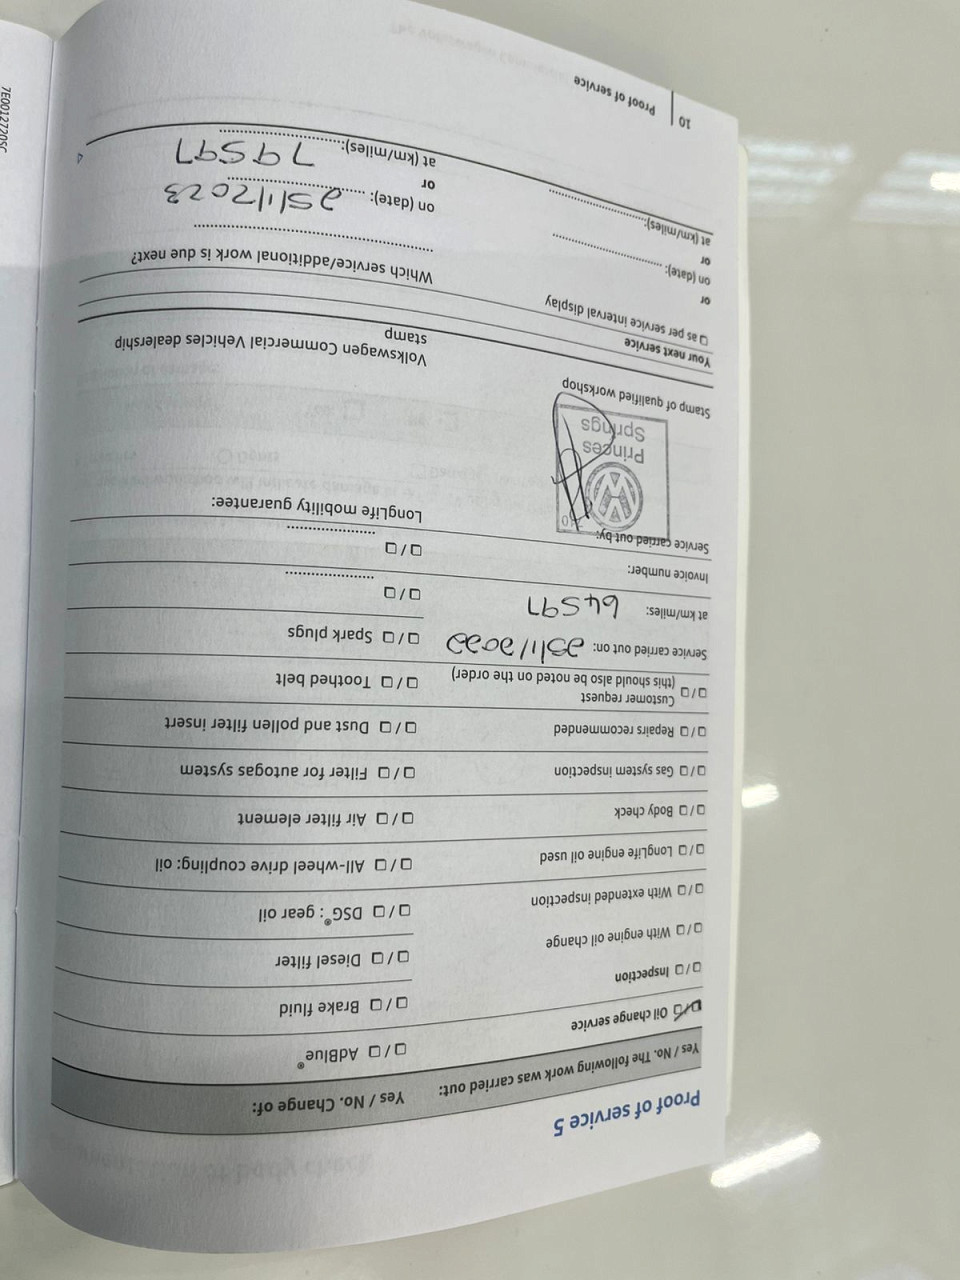 Proof of service 5
Yes / No. The following work was carried out:
❑/❑ Oil change service
❑/❑ Inspection
❑/❑ With engine oil change
❑/❑ With extended inspection
❑/❑ LongLife engine oil used
❑/❑ Body check
❑/❑ Gas system inspection
❑/❑ Repairs recommended
❑/❑ Customer request
(this should also be noted on the order)
Service carried out on: 25/11/2022
at km/miles: 64597
Invoice number:
Service carried out by:
Princes
Springs
Stamp of qualified workshop
Your next service
❑ as per service interval display
or
on (date):
or
at (km/miles):
Yes / No. Change of:
❑/❑ AdBlue®
❑/❑ Brake fluid
❑/❑ Diesel filter
❑/❑ DSG®: gear oil
❑/❑ All-wheel drive coupling: oil
❑/❑ Air filter element
❑/❑ Filter for autogas system
❑/❑ Dust and pollen filter insert
❑/❑ Toothed belt
❑/❑ Spark plugs
❑/❑
❑/❑
LongLife mobility guarantee:
Volkswagen Commercial Vehicles dealership
stamp
Which service/additional work is due next?
on (date): 25/11/2023
or
at (km/miles): 79597
10 | Proof of service
7E0012720SC